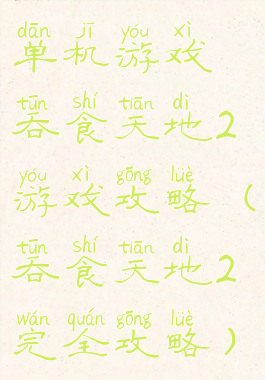 dān jī yóu xì
单机游戏
tūn shí tiān dì
吞食天地2
yóu xì gōng lüè
游戏攻略（
tūn shí tiān dì
吞食天地2
wán quán gōng lüè
完全攻略）